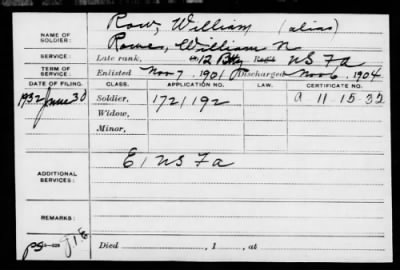 NAME OF SOLDIER: Row, William (alias)
Rowe, William N
SERVICE: Late rank, 12 Btty Reg't US Fa
TERM OF SERVICE: Enlisted Nov 7, 1901 Discharged Nov 6, 1904
DATE OF FILING. CLASS. APPLICATION NO. LAW. CERTIFICATE NO.
1932 June 30 Soldier, 1721192 a 11-15-32
Widow,
Minor,
ADDITIONAL SERVICES: E 1 US Fa
REMARKS:
Died , 1 , at